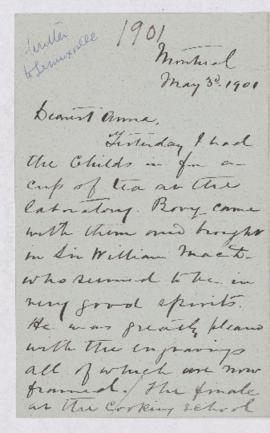 1901
written
to Lennoxville
Montreal
May 3d. 1901
Dearest Anna,
Yesterday I had
the Childs in for a
cup of tea at the
laboratory. Bovey came
with them and brought
in Sir William Macd.
who seemed to be in
very good spirits.
He was greatly pleased
with the engravings
all of which are now
framed. The finale
at the Cooking School